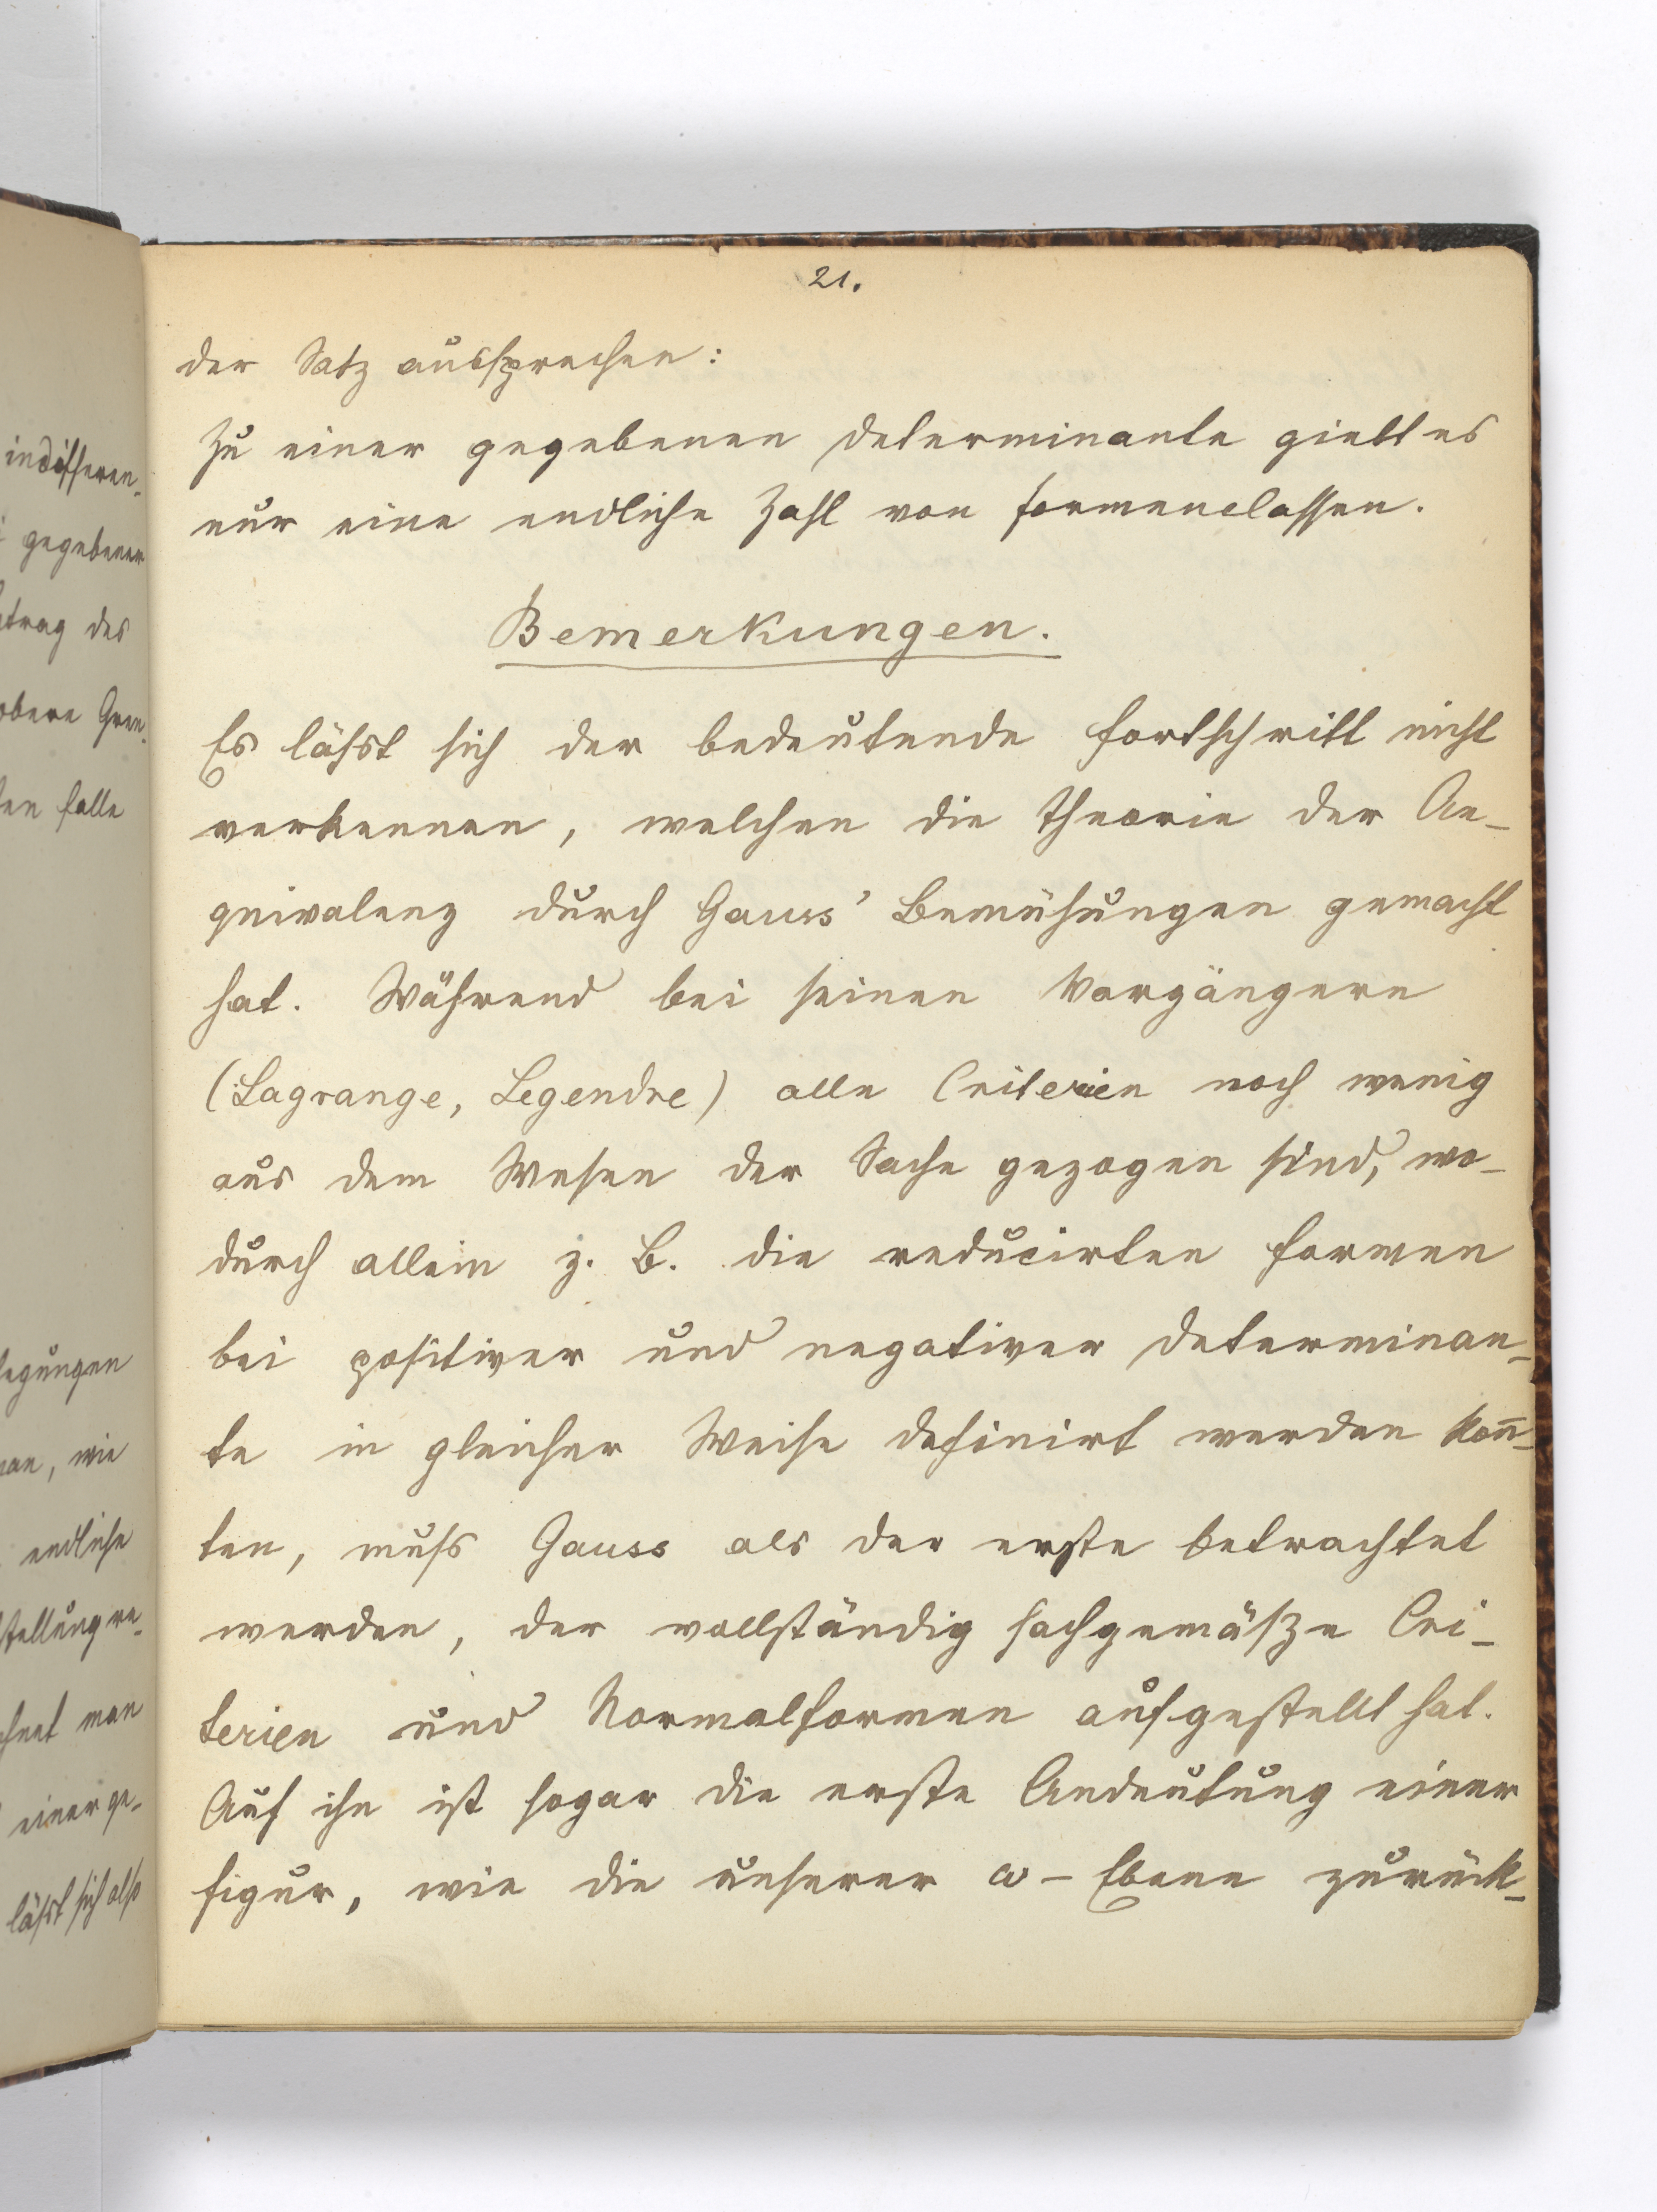 21.
der Satz aussprechen:
Zu einer gegebenen Determinante giebt es
nur eine endliche Zahl von Formenclassen.
Bemerkungen.
Es lässt sich der bedeutende Fortschritt nicht
verkennen, welchen die Theorie der Ae-
quivalenz durch Gauss' Bemühungen gemacht
hat. Während bei seinen Vorgängern
(Lagrange, Legendre) alle Criterien noch wenig
aus dem Wesen der Sache gezogen sind, wo-
durch allein z. B. die reducirten Formen
bei positiver und negativer Determinan-
te in gleicher Weise definirt werden kon̄-
ten, muss Gauss als der erste betrachtet
werden, der vollständig sachgemäße Cri-
terien und Normalformen aufgestellt hat.
Auf ihn ist sogar die erste Andeutung einer
Figur, wie die unserer ω-Ebene zurück-
indifferen-
gegebener
trag des
obere Gren-
en Falle
legungen
man, wie
endliche
stellung re-
chnet man
einer ge-
lässt sich also